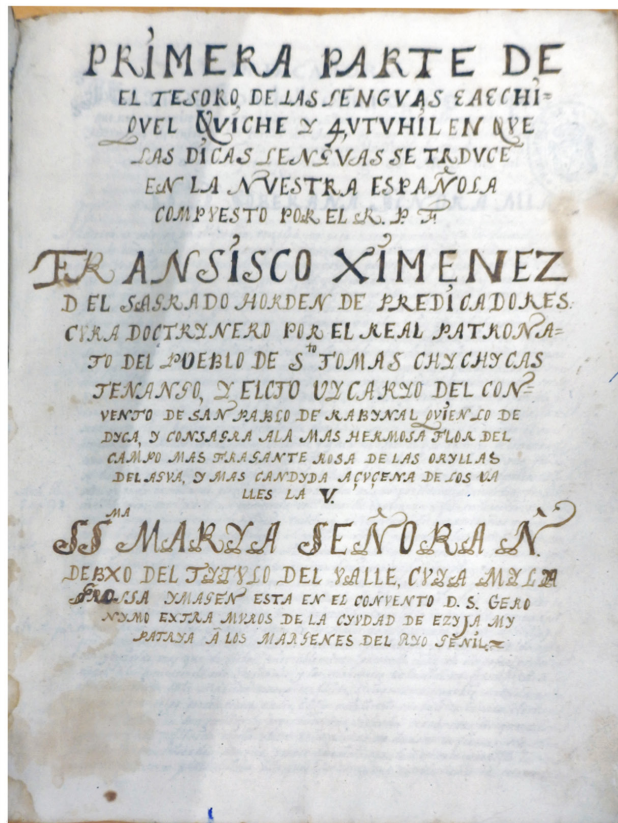 PRIMERA PARTE DE
EL TESORO, DE LAS LENGVAS CACCHI=
QVEL QVICHE Y 4,VTVHIL EN QVE
LAS DICAS LENGVAS SE TRDVCE
EN LA NVESTRA ESPAÑOLA
COMPVESTO POR EL R. P. F.
FRANSISCO XIMENEZ
DEL SAGRADO HORDEN DE PREDICADORES.
CVRA DOCTRYNERO POR EL REAL PATRONA=
TO DEL PUEBLO DE Sto TOMAS CHYCHYCAS
TENANGO, Y ELCTO VYCARYO DEL CON=
VENTO DE SAN PABLO DE RABYNAL QVIEN LO DE
DYCA, Y CONSAGRA A LA MAS HERMOSA FLOR DEL
CAMPO MAS FRAGANTE ROSA DE LAS ORYLLAS
DEL AGVA, Y MAS CANDYDA AÇVÇENA DE LOS VA
LLES LA V.
SSMA MARYA SEÑORA Ñ.
DEBXO DEL TYTVLO DEL VALLE, CVYA MYLA
GROSSA YMAGEN ESTA EN EL CONVENTO D. S. GERO
NYMO EXTRA MVROS DE LA CYVDAD DE EZYJA MY
PATRYA A LOS MARGENES DEL RYO GENIL=